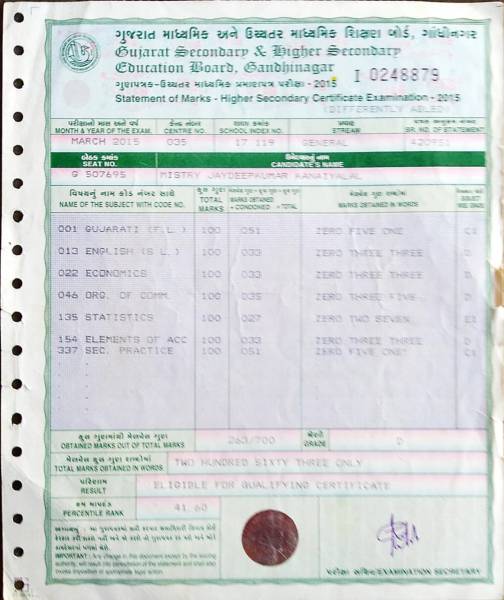 ગુજરાત માધ્યમિક અને ઉચ્ચતર માધ્યમિક શિક્ષણ બોર્ડ, ગાંધીનગર
Gujarat Secondary & Higher Secondary
Education Board, Gandhinagar
I 0248879
ગુણપત્રક-ઉચ્ચતર માધ્યમિક પ્રમાણપત્ર પરીક્ષા - 2015
Statement of Marks - Higher Secondary Certificate Examination - 2015
(DIFFERENTLY ABLED)
પરીક્ષાનો માસ અને વર્ષ કેન્દ્ર નંબર શાળા ક્રમાંક પ્રવાહ
MONTH & YEAR OF THE EXAM. CENTRE NO. SCHOOL INDEX NO. STREAM SR. NO. OF STATEMENT
MARCH 2015 035 17 119 GENERAL 420951
બેઠક ક્રમાંક ઉમેદવારનું નામ
SEAT NO. CANDIDATE'S NAME
G 507695 MISTRY JAYDEEPKUMAR KANAIYALAL
વિષયનું નામ કોડ નંબર સાથે કુલ ગુણ
NAME OF THE SUBJECT WITH CODE NO. TOTAL MARKS MARKS OBTAINED + CONDONED = TOTAL MARKS OBTAINED IN WORDS
001 GUJARATI (F.L.) 100 051 ZERO FIVE ONE C1
013 ENGLISH (S L.) 100 033 ZERO THREE THREE D
022 ECONOMICS 100 033 ZERO THREE THREE D
046 ORG. OF COMM. 100 035 ZERO THREE FIVE D
135 STATISTICS 100 027 ZERO TWO SEVEN E1
154 ELEMENTS OF ACC 100 033 ZERO THREE THREE D
337 SEC. PRACTICE 100 051 ZERO FIVE ONE C1
કુલ ગુણમાંથી મેળવેલ ગુણ ગ્રેડ
OBTAINED MARKS OUT OF TOTAL MARKS 263/700 GRADE D
મેળવેલ કુલ ગુણ શબ્દોમાં
TOTAL MARKS OBTAINED IN WORDS TWO HUNDRED SIXTY THREE ONLY
પરિણામ
RESULT ELIGIBLE FOR QUALIFYING CERTIFICATE
PERCENTILE RANK 41.60
IMPORTANT : Any change in this document except by the issuing
authority, will result into cancellation of the statement and shall also
invoke imposition of appropriate legal action.
પરીક્ષા સચિવ/EXAMINATION SECRETARY